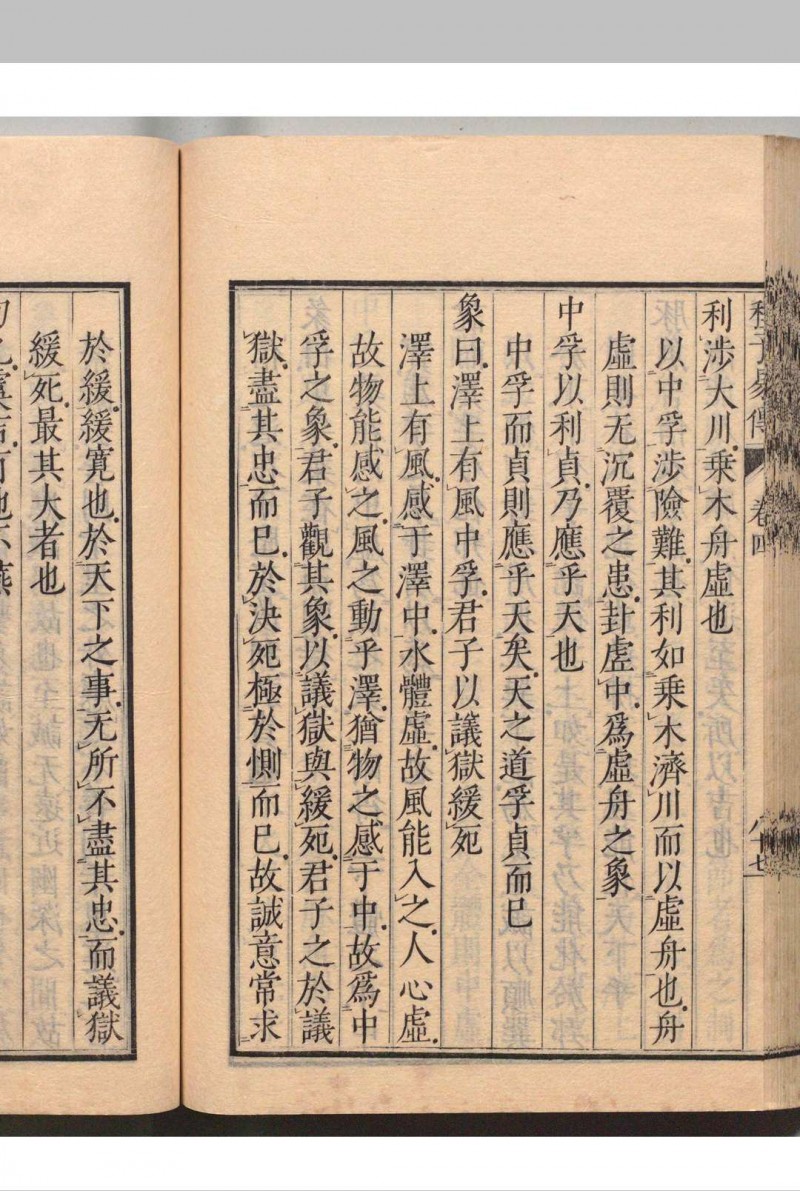 程子易傳 卷四 八十七
利涉大川乗木舟虛也
以中孚涉險難其利如乗木濟川而以虛舟也舟
虛則无沉覆之患封虛中爲虛舟之象
中孚以利貞乃應乎天也
中孚而貞則應乎天矣天之道孚貞而已
象曰澤上有風中孚君子以議獄緩死
澤上有風感于澤中水體虛故風能入之人心虛
故物能感之風之動乎澤猶物之感于中故爲中
孚之象君子觀其象以議獄與緩死君子之於議
獄盡其忠而已於決死極於惻而已故誠意常求
於緩緩寬也於天下之事无所不盡其忠而議獄
緩死最其大者也